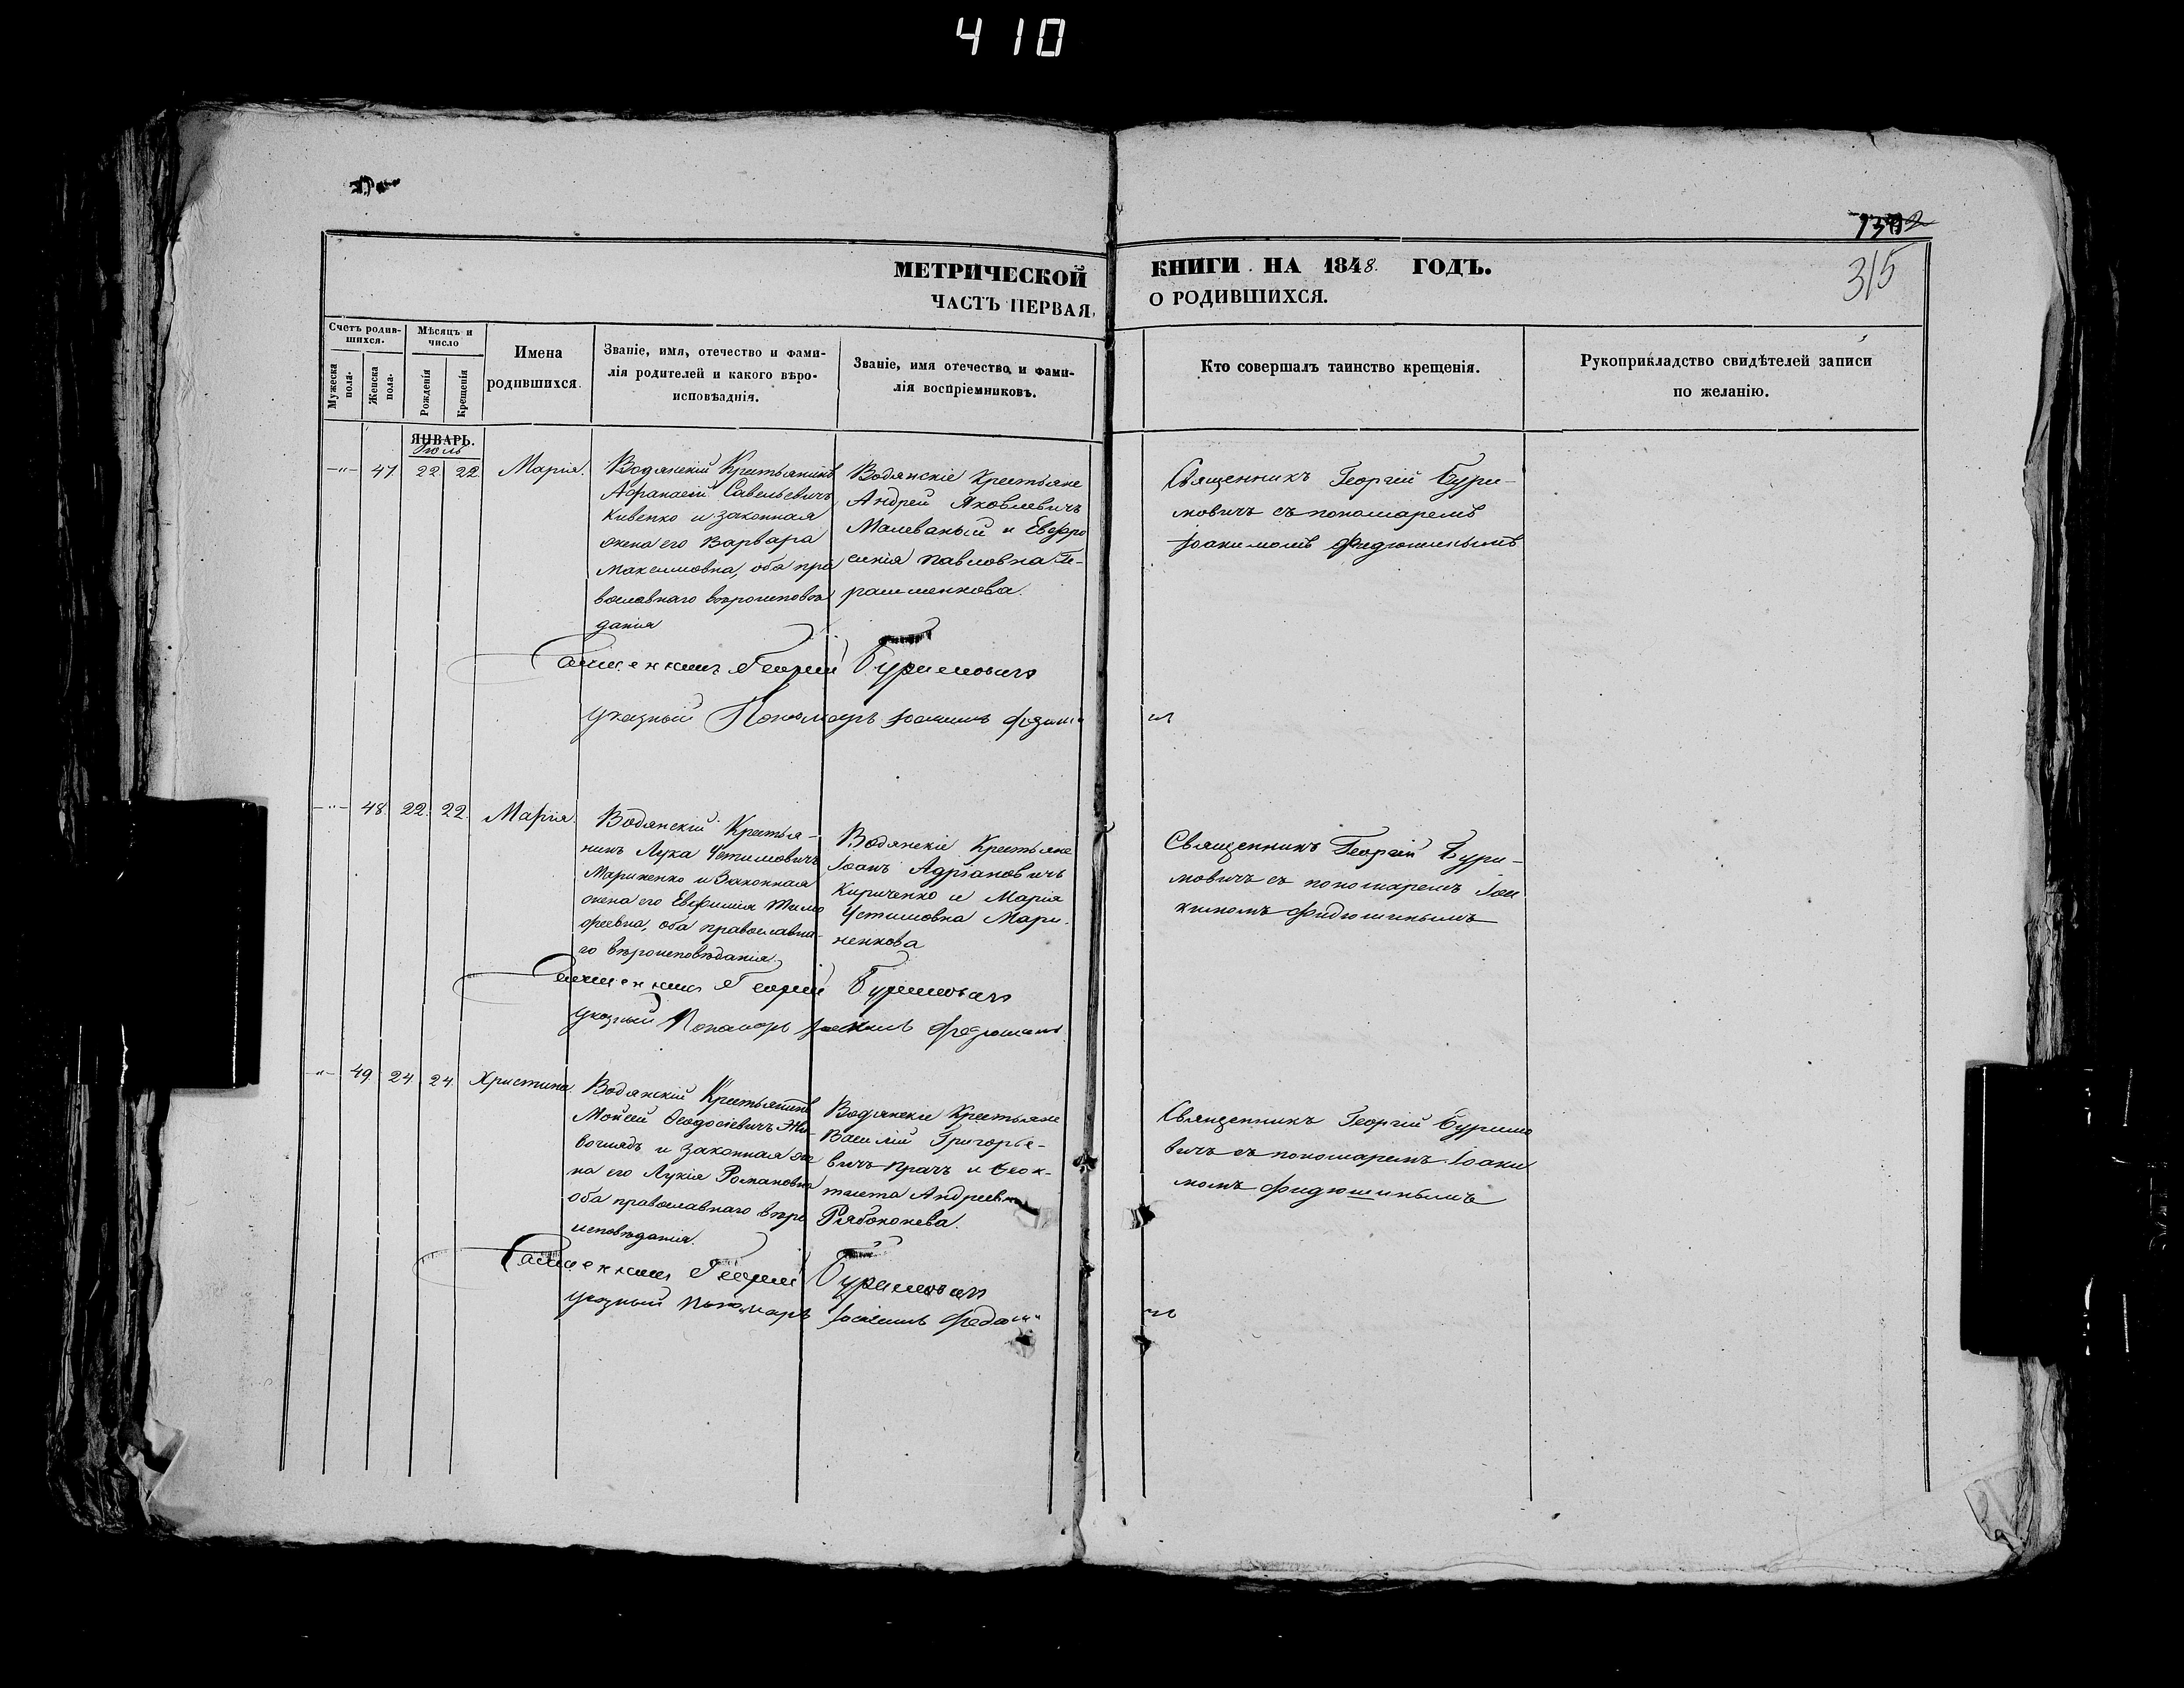 410
1302
315
МЕТРИЧЕСКОЙ КНИГИ НА 1848. ГОДЪ.
ЧАСТЬ ПЕРВАЯ, О РОДИВШИХСЯ.
Счетъ родив-
шихся.
Мужеска
пола.
Женска
пола.
Мѣсяцъ и
число
Рожденія
Крещенія
Имена
родившихся.
Званіе, имя, отечество и фами-
лія родителей и какого вѣро-
исповѣданія.
Званіе, имя отечество и фами-
лія воспріемниковъ.
Кто совершалъ таинство крещенія.
Рукоприкладство свидѣтелей записи
по желанію.
ЯНВАРЬ.
Іюль
-"- 47. 22 22. Марія.
Водянскій Крестьянинъ
Афанасій Савельевичъ
Кивенко и законная
жена его Варвара
Максимовна, оба пра
вославнаго вѣроисповѣ
данія
Водянскіе Крестьяне
Андрей Яковлевичъ
Малеваный и Евфро
синія Павловна Ге-
рашменкова.
Священникъ Георгій Бури-
мовичъ съ пономаремъ
Іоакимомъ Федюшинымъ
Священникъ Георгій Буримовичъ
указный Пономарь Іоакимъ Федюши
нъ
-"- 48. 22. 22. Марія.
Водянскій Крестья-
нинъ Лука Устимовичъ
Мариненко и Законная
жена его Евфимія Тимо
феевна, оба православна-
го вѣроисповѣданія.
Водянскіе Крестьяне
Іоанъ Адріановичъ
Кириченко и Марія
Устимовна Мари-
ненкова
Священникъ Георгій Бури-
мовичъ съ пономаремъ Іоа
кимомъ Федюшинымъ
Священникъ Георгій Буримовичъ
указный Пономарь Іоакимъ Федюшинъ
-"- 49. 24. 24. Христина.
Водянскій Крестьянинъ
Мойсей Ѳеодосіевичъ Жи-
воглядъ и законная же
на его Лукія Романовна
оба православнаго вѣро
исповѣданія.
Водянскіе Крестьяне
Василій Григорье-
вичъ Прачъ и Ѳеок-
тиста Андреевна
Рябоконева.
Священникъ Георгій Буримо
вичъ съ пономаремъ Іоаки
момъ Федюшинымъ
Священникъ Георгій Буримовичъ
указный Пономарь Іоакимъ Федюши
нъ